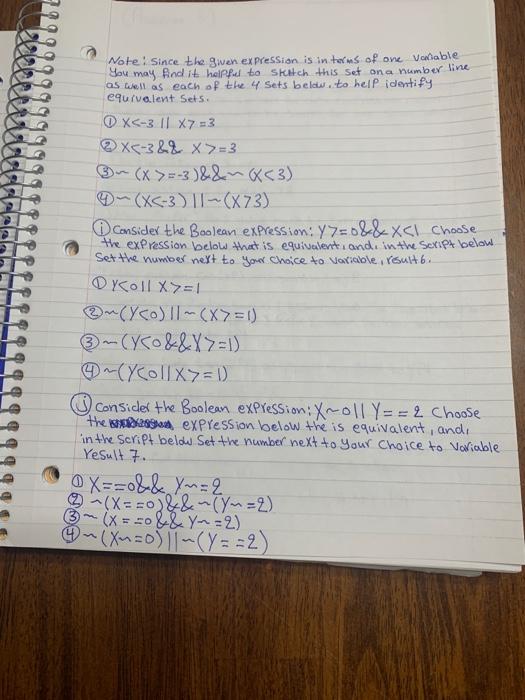 Note: Since the given expression is in terms of one variable
you may find it helpful to sketch this set on a number line
as well as each of the 4 sets below, to help identify
equivalent sets.
① X<-3 || X7=3
② X<-3 && X>=3
③ ~(X>=-3)&&~(X<3)
④ ~(X<-3)||~(X73)
ⓘ Consider the Boolean expression: Y7=0&& X<1 Choose
the expression below that is equivalent, and, in the script below
set the number next to your choice to variable, result6.
① Y<0|| X>=1
② ~(Y<0)||~(X>=1)
③ ~(Y<0&&X>=1)
④ ~(Y<0||X>=1)
ⓙ Consider the Boolean expression: X~0|| Y==2 Choose
the expression below the is equivalent, and,
in the script below set the number next to your choice to variable
result 7.
① X==0&& Y~=2
② ~(X==0)&&~(Y~=2)
③ ~(X==0&& Y~=2)
④ ~(X~=0)||~(Y==2)